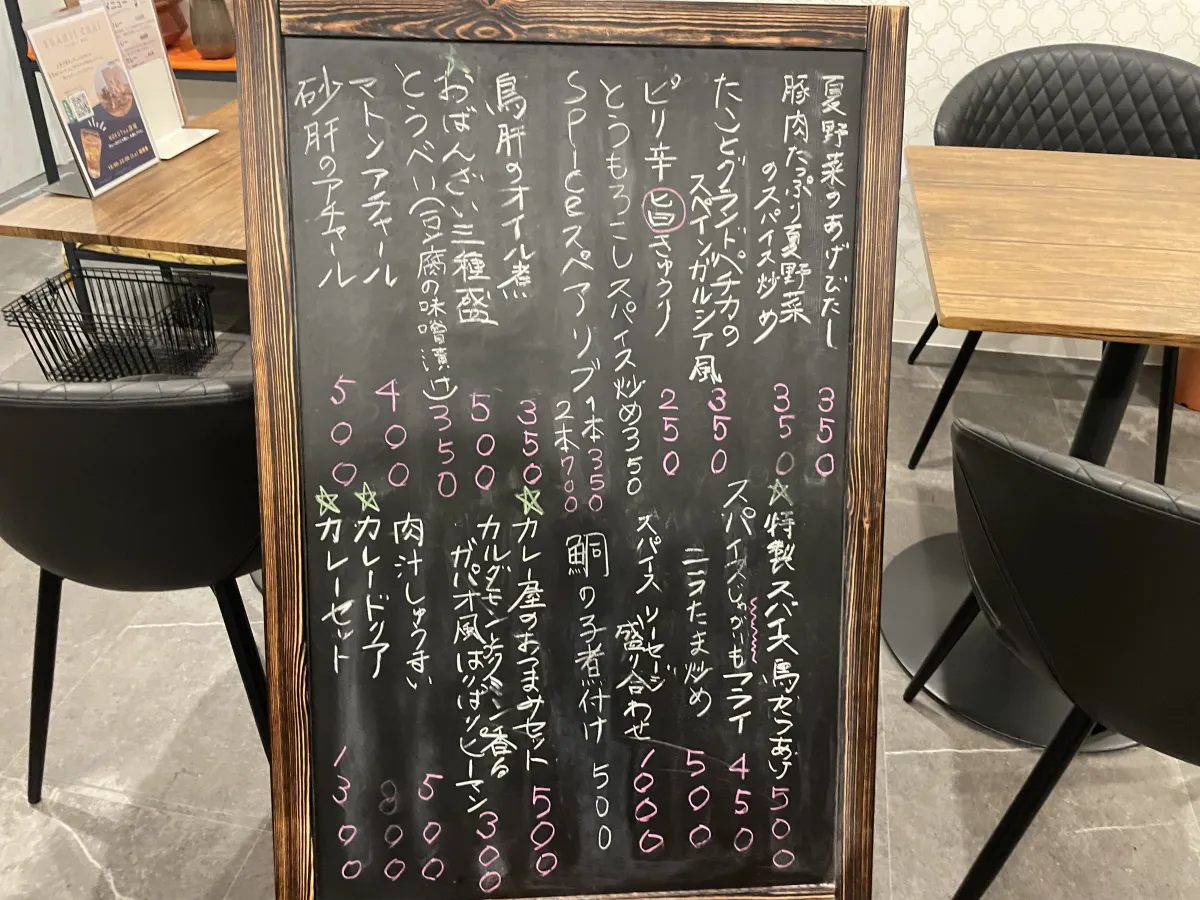 夏野菜のあげびたし 350
豚肉たっぷり夏野菜
のスパイス炒め 350
たことグランドペチカの
スペインガルシア風 350
ピリ辛旨きゅうり 250
とうもろこしスパイス炒め 350
Spiceスペアリブ 1本 350
2本 700
鳥肝のオイル煮 350
おばんざい三種盛 500
とうべい(豆腐の味噌漬け) 350
マトンアチャール 400
砂肝のアチャール 500
☆特製スパイス鳥からあげ 500
スパイスじゃがいもフライ 450
ニラたま炒め 500
スパイスソーセージ
盛り合わせ 1000
鯛の子煮付け 500
☆カレー屋のおつまみセット 500
カルダモンとクミン香る
ガパオ風ぱりぱりピーマン 300
肉汁しゅうまい 500
☆カレードリア 800
☆カレーセット 1300